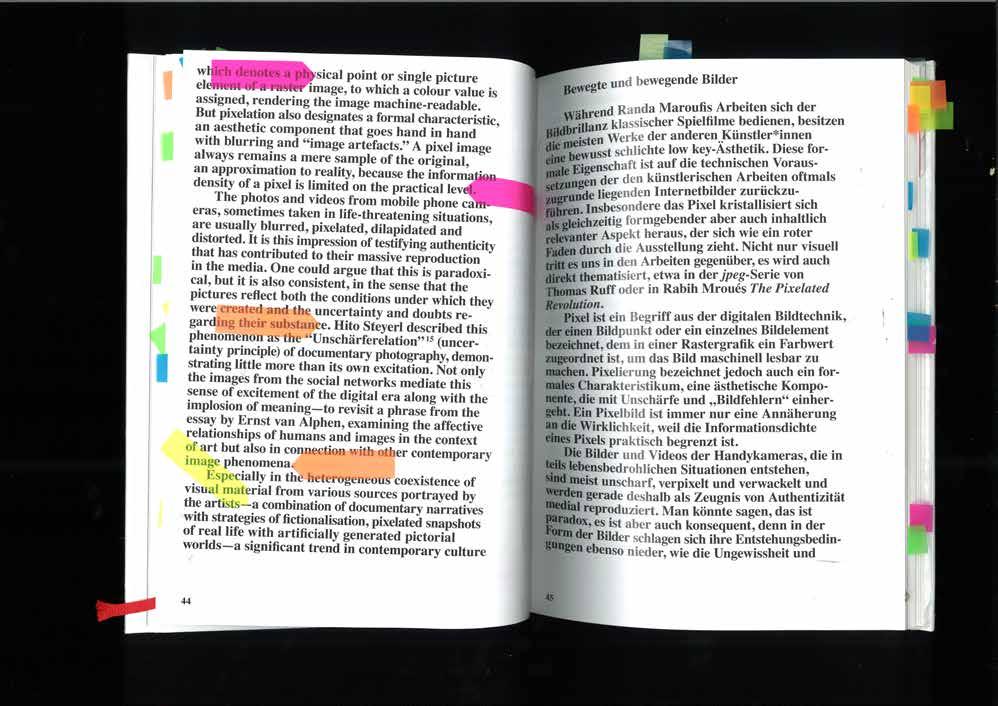 which denotes a physical point or single picture
element of a raster image, to which a colour value is
assigned, rendering the image machine-readable.
But pixelation also designates a formal characteristic,
an aesthetic component that goes hand in hand
with blurring and “image artefacts.” A pixel image
always remains a mere sample of the original,
an approximation to reality, because the information
density of a pixel is limited on the practical level.
The photos and videos from mobile phone cam-
eras, sometimes taken in life-threatening situations,
are usually blurred, pixelated, dilapidated and
distorted. It is this impression of testifying authenticity
that has contributed to their massive reproduction
in the media. One could argue that this is paradoxi-
cal, but it is also consistent, in the sense that the
pictures reflect both the conditions under which they
were created and the uncertainty and doubts re-
garding their substance. Hito Steyerl described this
phenomenon as the “Unschärferelation”15 (uncer-
tainty principle) of documentary photography, demon-
strating little more than its own excitation. Not only
the images from the social networks mediate this
sense of excitement of the digital era along with the
implosion of meaning—to revisit a phrase from the
essay by Ernst van Alphen, examining the affective
relationships of humans and images in the context
of art but also in connection with other contemporary
image phenomena.
Especially in the heterogeneous coexistence of
visual material from various sources portrayed by
the artists—a combination of documentary narratives
with strategies of fictionalisation, pixelated snapshots
of real life with artificially generated pictorial
worlds—a significant trend in contemporary culture
44
Bewegte und bewegende Bilder
Während Randa Maroufis Arbeiten sich der
Bildbrillanz klassischer Spielfilme bedienen, besitzen
die meisten Werke der anderen Künstler*innen
eine bewusst schlichte low key-Ästhetik. Diese for-
male Eigenschaft ist auf die technischen Voraus-
setzungen der den künstlerischen Arbeiten oftmals
zugrunde liegenden Internetbilder zurückzu-
führen. Insbesondere das Pixel kristallisiert sich
als gleichzeitig formgebender aber auch inhaltlich
relevanter Aspekt heraus, der sich wie ein roter
Faden durch die Ausstellung zieht. Nicht nur visuell
tritt es uns in den Arbeiten gegenüber, es wird auch
direkt thematisiert, etwa in der jpeg-Serie von
Thomas Ruff oder in Rabih Mroués The Pixelated
Revolution.
Pixel ist ein Begriff aus der digitalen Bildtechnik,
der einen Bildpunkt oder ein einzelnes Bildelement
bezeichnet, dem in einer Rastergrafik ein Farbwert
zugeordnet ist, um das Bild maschinell lesbar zu
machen. Pixelierung bezeichnet jedoch auch ein for-
males Charakteristikum, eine ästhetische Kompo-
nente, die mit Unschärfe und „Bildfehlern“ einher-
geht. Ein Pixelbild ist immer nur eine Annäherung
an die Wirklichkeit, weil die Informationsdichte
eines Pixels praktisch begrenzt ist.
Die Bilder und Videos der Handykameras, die in
teils lebensbedrohlichen Situationen entstehen,
sind meist unscharf, verpixelt und verwackelt und
werden gerade deshalb als Zeugnis von Authentizität
medial reproduziert. Man könnte sagen, das ist
paradox, es ist aber auch konsequent, denn in der
Form der Bilder schlagen sich ihre Entstehungsbedin-
gungen ebenso nieder, wie die Ungewissheit und
45